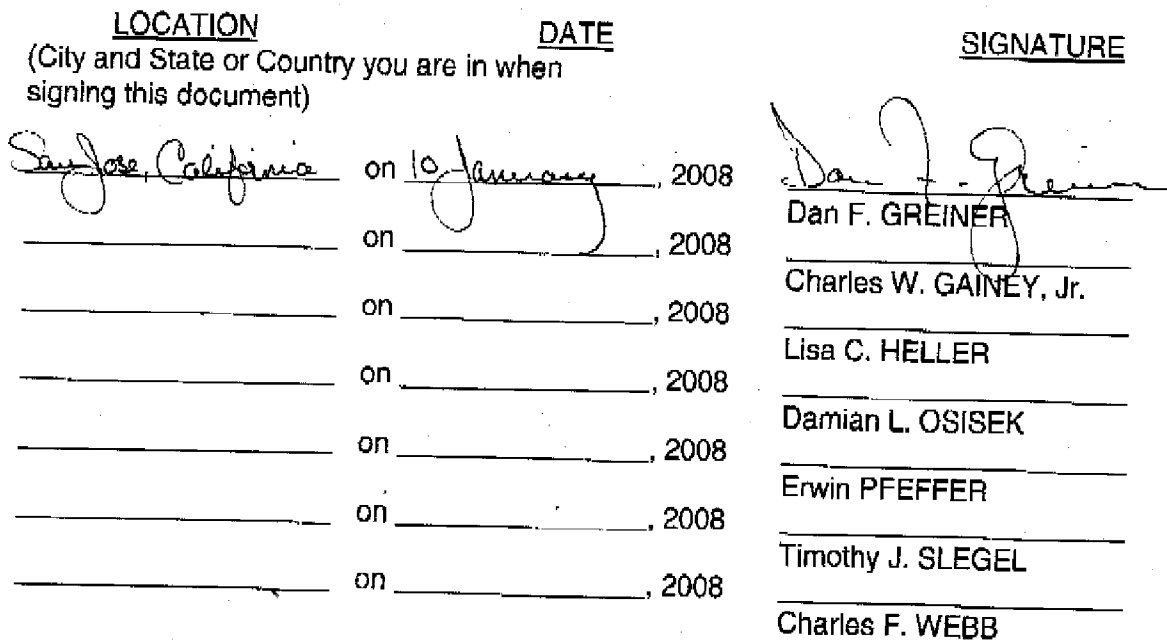 LOCATION DATE SIGNATURE
(City and State or Country you are in when
signing this document)
San Jose, California on 10 January, 2008 Dan F. Greiner
Dan F. GREINER
on , 2008
Charles W. GAINEY, Jr.
on , 2008
Lisa C. HELLER
on , 2008
Damian L. OSISEK
on , 2008
Erwin PFEFFER
on , 2008
Timothy J. SLEGEL
on , 2008
Charles F. WEBB